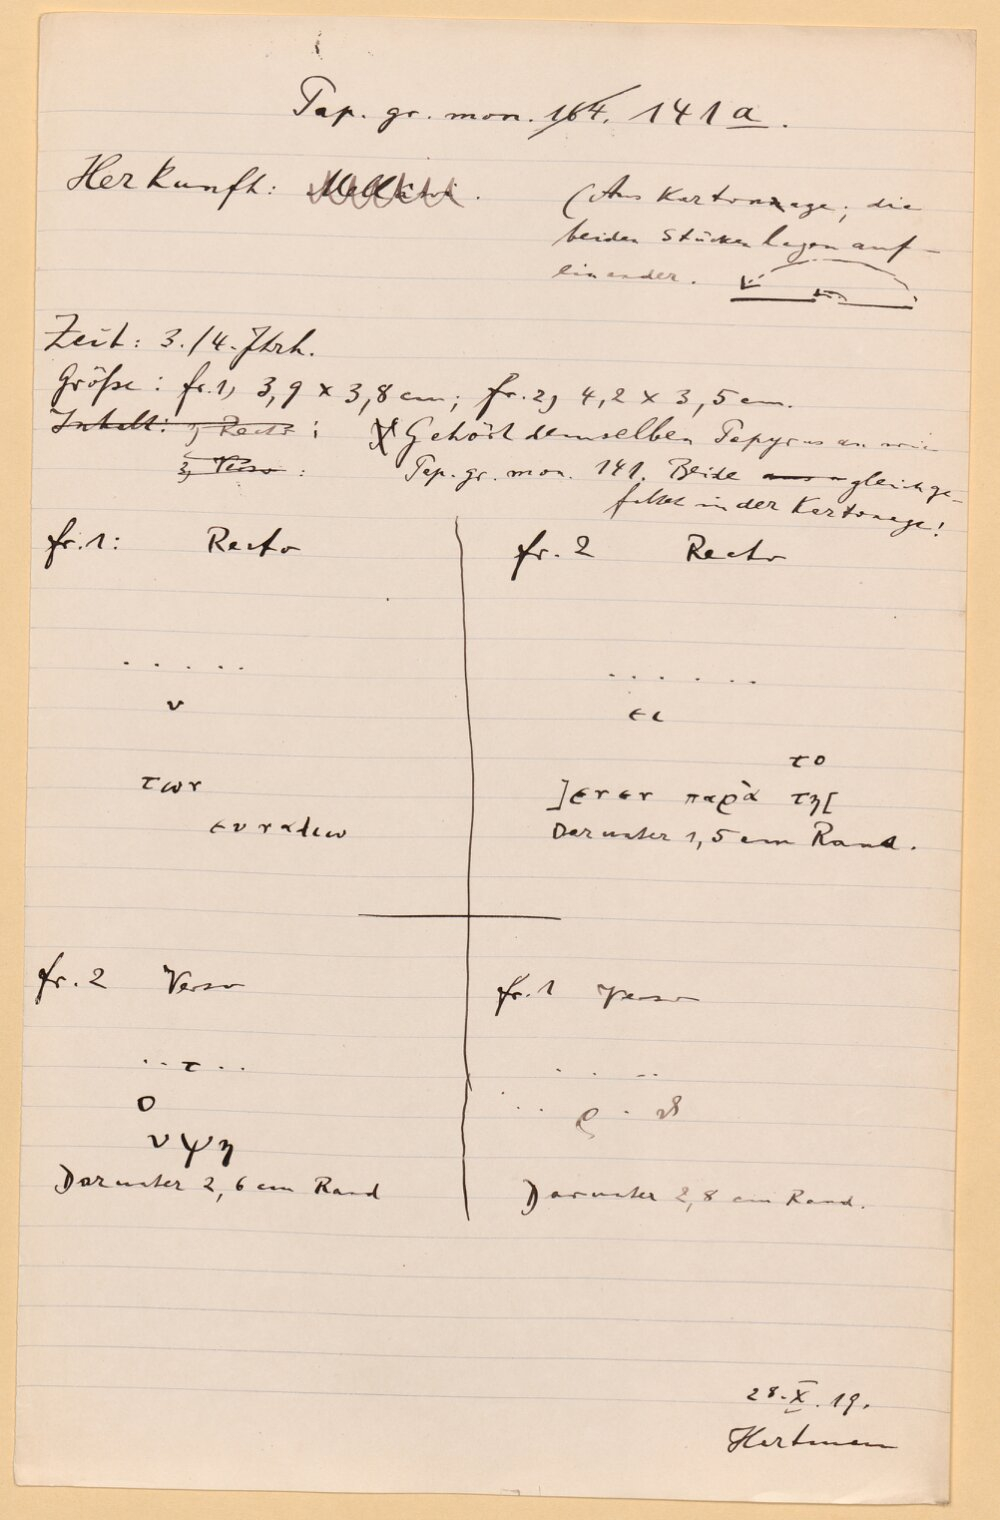 Pap. gr. mon. 164. 141 a.
Herkunft:
(Aus Kartonnage; die
beiden Stücken lagen auf-
einander.
Zeit: 3./4. Jhrh.
Größe: fr. 1, 3,9 x 3,8 cm; fr. 2, 4,2 x 3,5 cm.
Inhalt: 1, Recto: X Gehört demselben Papyrus an wie
2, Verso: Pap. gr. mon. 141. Beide gleich ge-
faltet in der Kartonage!
fr. 1: Recto
. . . . .
ν
των
ευναλιω
fr. 2 Recto
. . . . . .
ει
το
]ενεν παρὰ τη[
Darunter 1,5 cm Rand.
fr. 2 Verso
. . τ . .
ο
νψη
Darunter 2,6 cm Rand
fr. 1 Verso
. . . .
. . . ρ . νθ
Darunter 2,8 cm Rand.
28. X. 19.
Hartmann